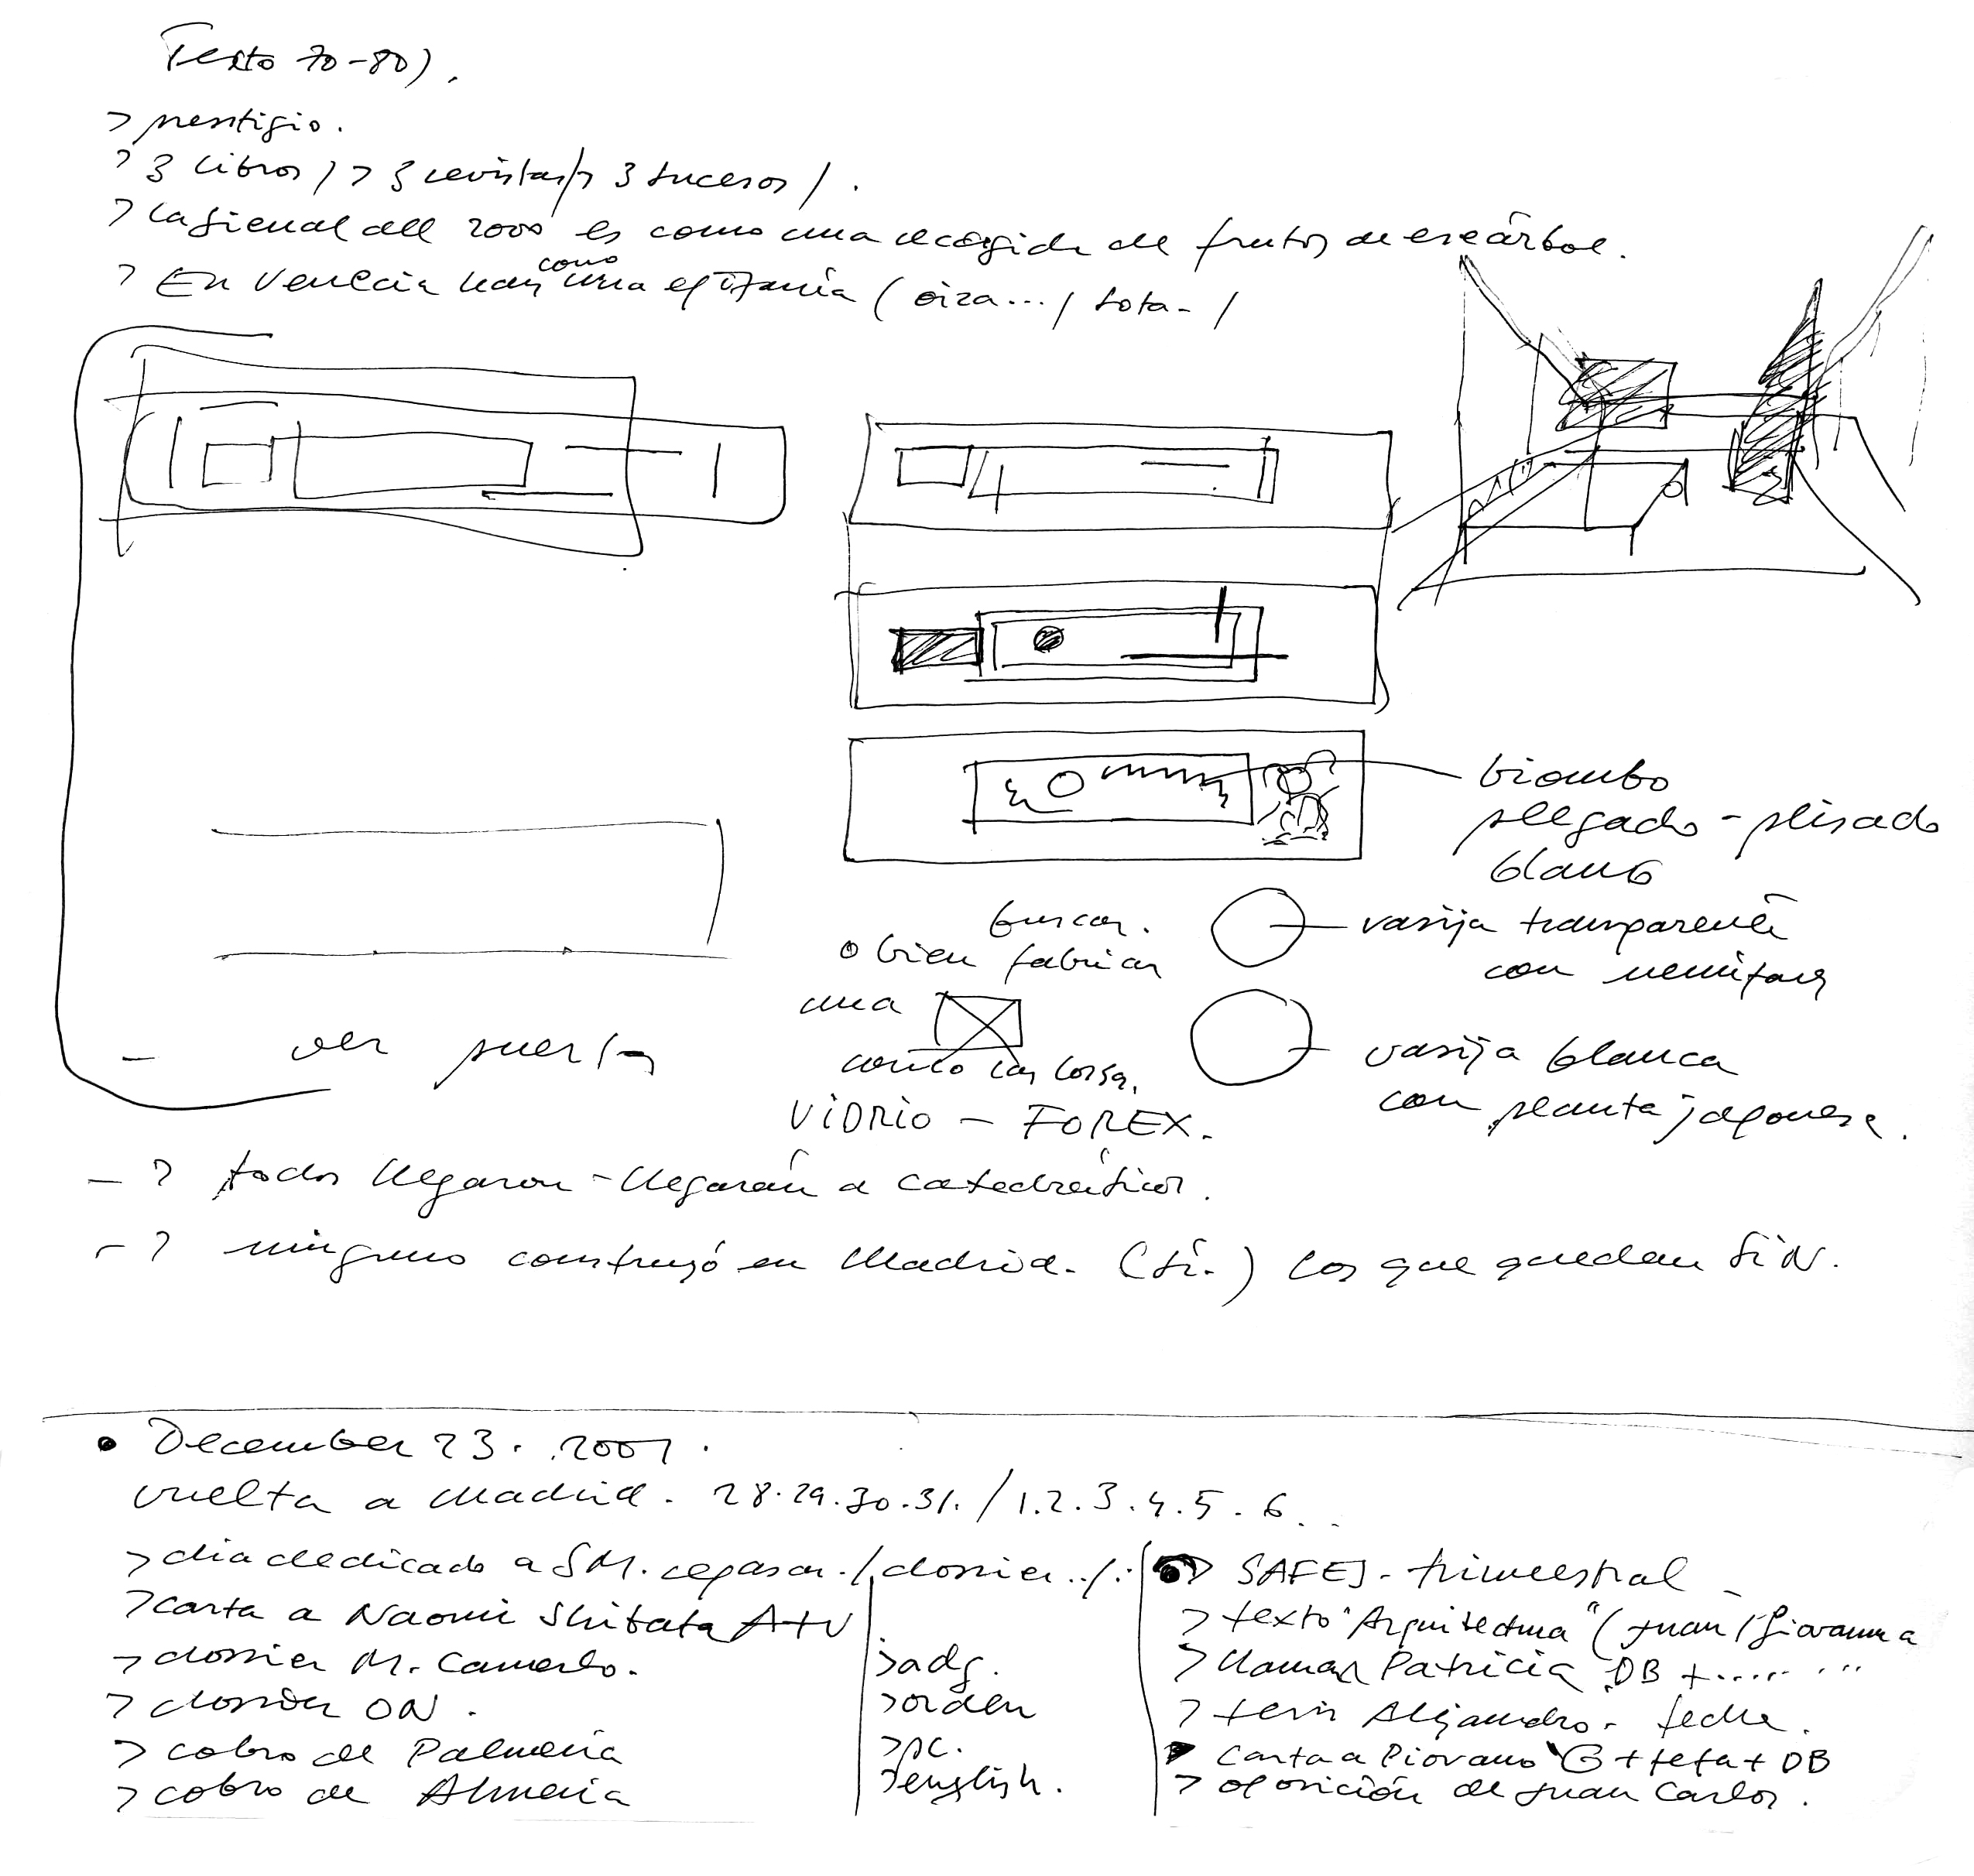 Texto 70-80).
> prestigio.
> 3 libros / > 3 revistas / > 3 sucesos / .
> La Bienal del 2000 es como una recogida de frutos de ese árbol.
> En Venecia hay como una epifanía ( oiza... / sota- /
biombo
plegado - plisado
blanco
buscar.
o bien fabricar
una
como las Corsa.
VIDRIO - FOREX.
vasija transparente
con nenúfares
vasija blanca
con planta japonesa.
- ver puerta
- > todos llegaron - llegarán a catedráticos.
- > ninguno construyó en Madrid. (Sí.) Los que quedan SIN.
• December 23. 2001.
vuelta a Madrid. 28.29.30.31. / 1.2.3.4.5.6..
> dia dedicado a SM. repasar. / dossier.. /.
> carta a Naomi Shibata A+U
> dossier M. Camerlo.
> dossier ON.
> cobro de Palmeria
> cobro de Almeria
> adg.
> orden
> pc.
> english.
> SAFEJ - trimestral -
> texto "Arquitectura" ( Juan / Giovanna
> llamar Patricia DB + ........
> tesis Alejandro - fecha.
> carta a Piovano G + fefa + DB
> oposición de Juan Carlos.